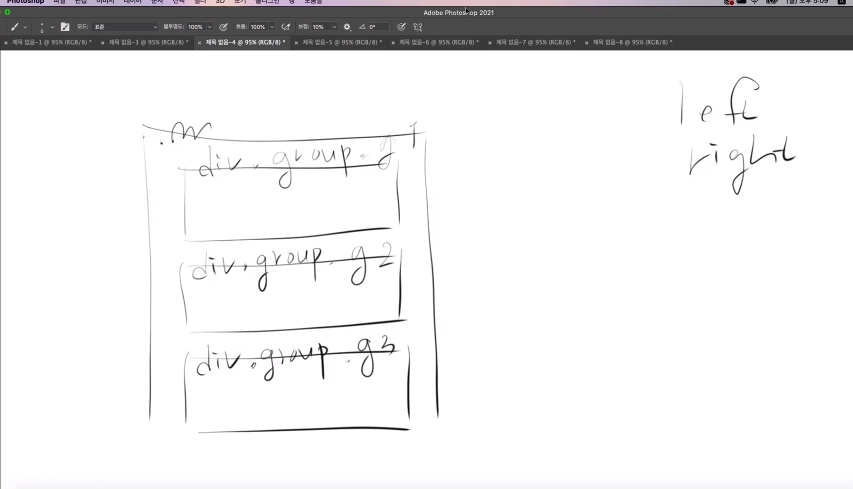 Photoshop 파일 편집 이미지 레이어 문자 선택 필터 3D 보기 플러그인 창 도움말
Adobe Photoshop 2021
모드: 표준 불투명도: 100% 흐름: 100% 보정: 10% 0°
× 제목 없음-1 @ 95% (RGB/8) * × 제목 없음-3 @ 95% (RGB/8) * × 제목 없음-4 @ 95% (RGB/8) * × 제목 없음-5 @ 95% (RGB/8) * × 제목 없음-6 @ 95% (RGB/8) * × 제목 없음-7 @ 95% (RGB/8) * × 제목 없음-8 @ 95% (RGB/8) *
left
right
.m
div.group.g1
div.group.g2
div.group.g3